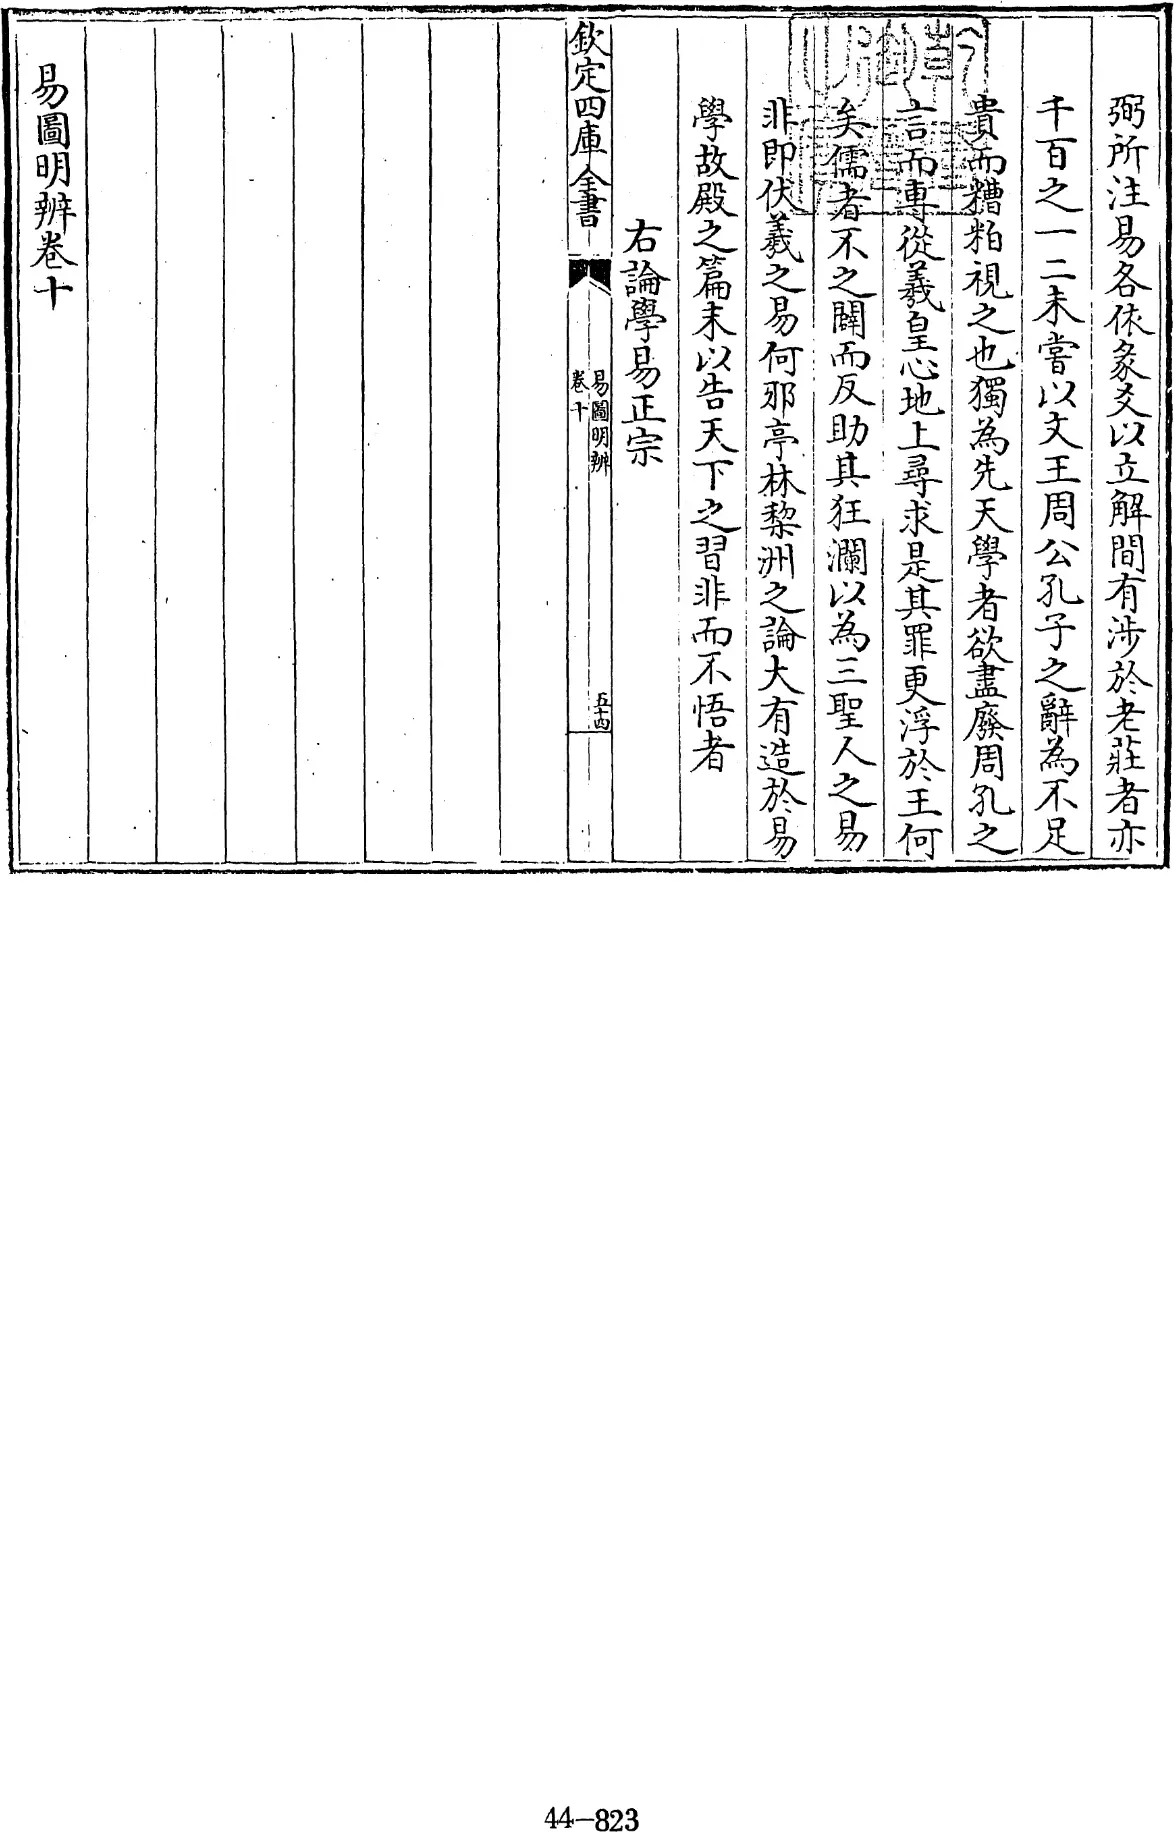 弼所注易各依彖爻以立解間有涉於老莊者亦
千百之一二未嘗以文王周公孔子之辭為不足
貴而糟粕視之也獨為先天學者欲盡廢周孔之
言而專從羲皇心地上尋求是其罪更浮於王何
矣儒者不之闢而反助其狂瀾以為三聖人之易
非即伏羲之易何邪亭林黎洲之論大有造於易
學故殿之篇末以告天下之習非而不悟者
右論學易正宗
欽定四庫全書
易圖明辨
卷十
五十四
易圖明辨卷十
44-823